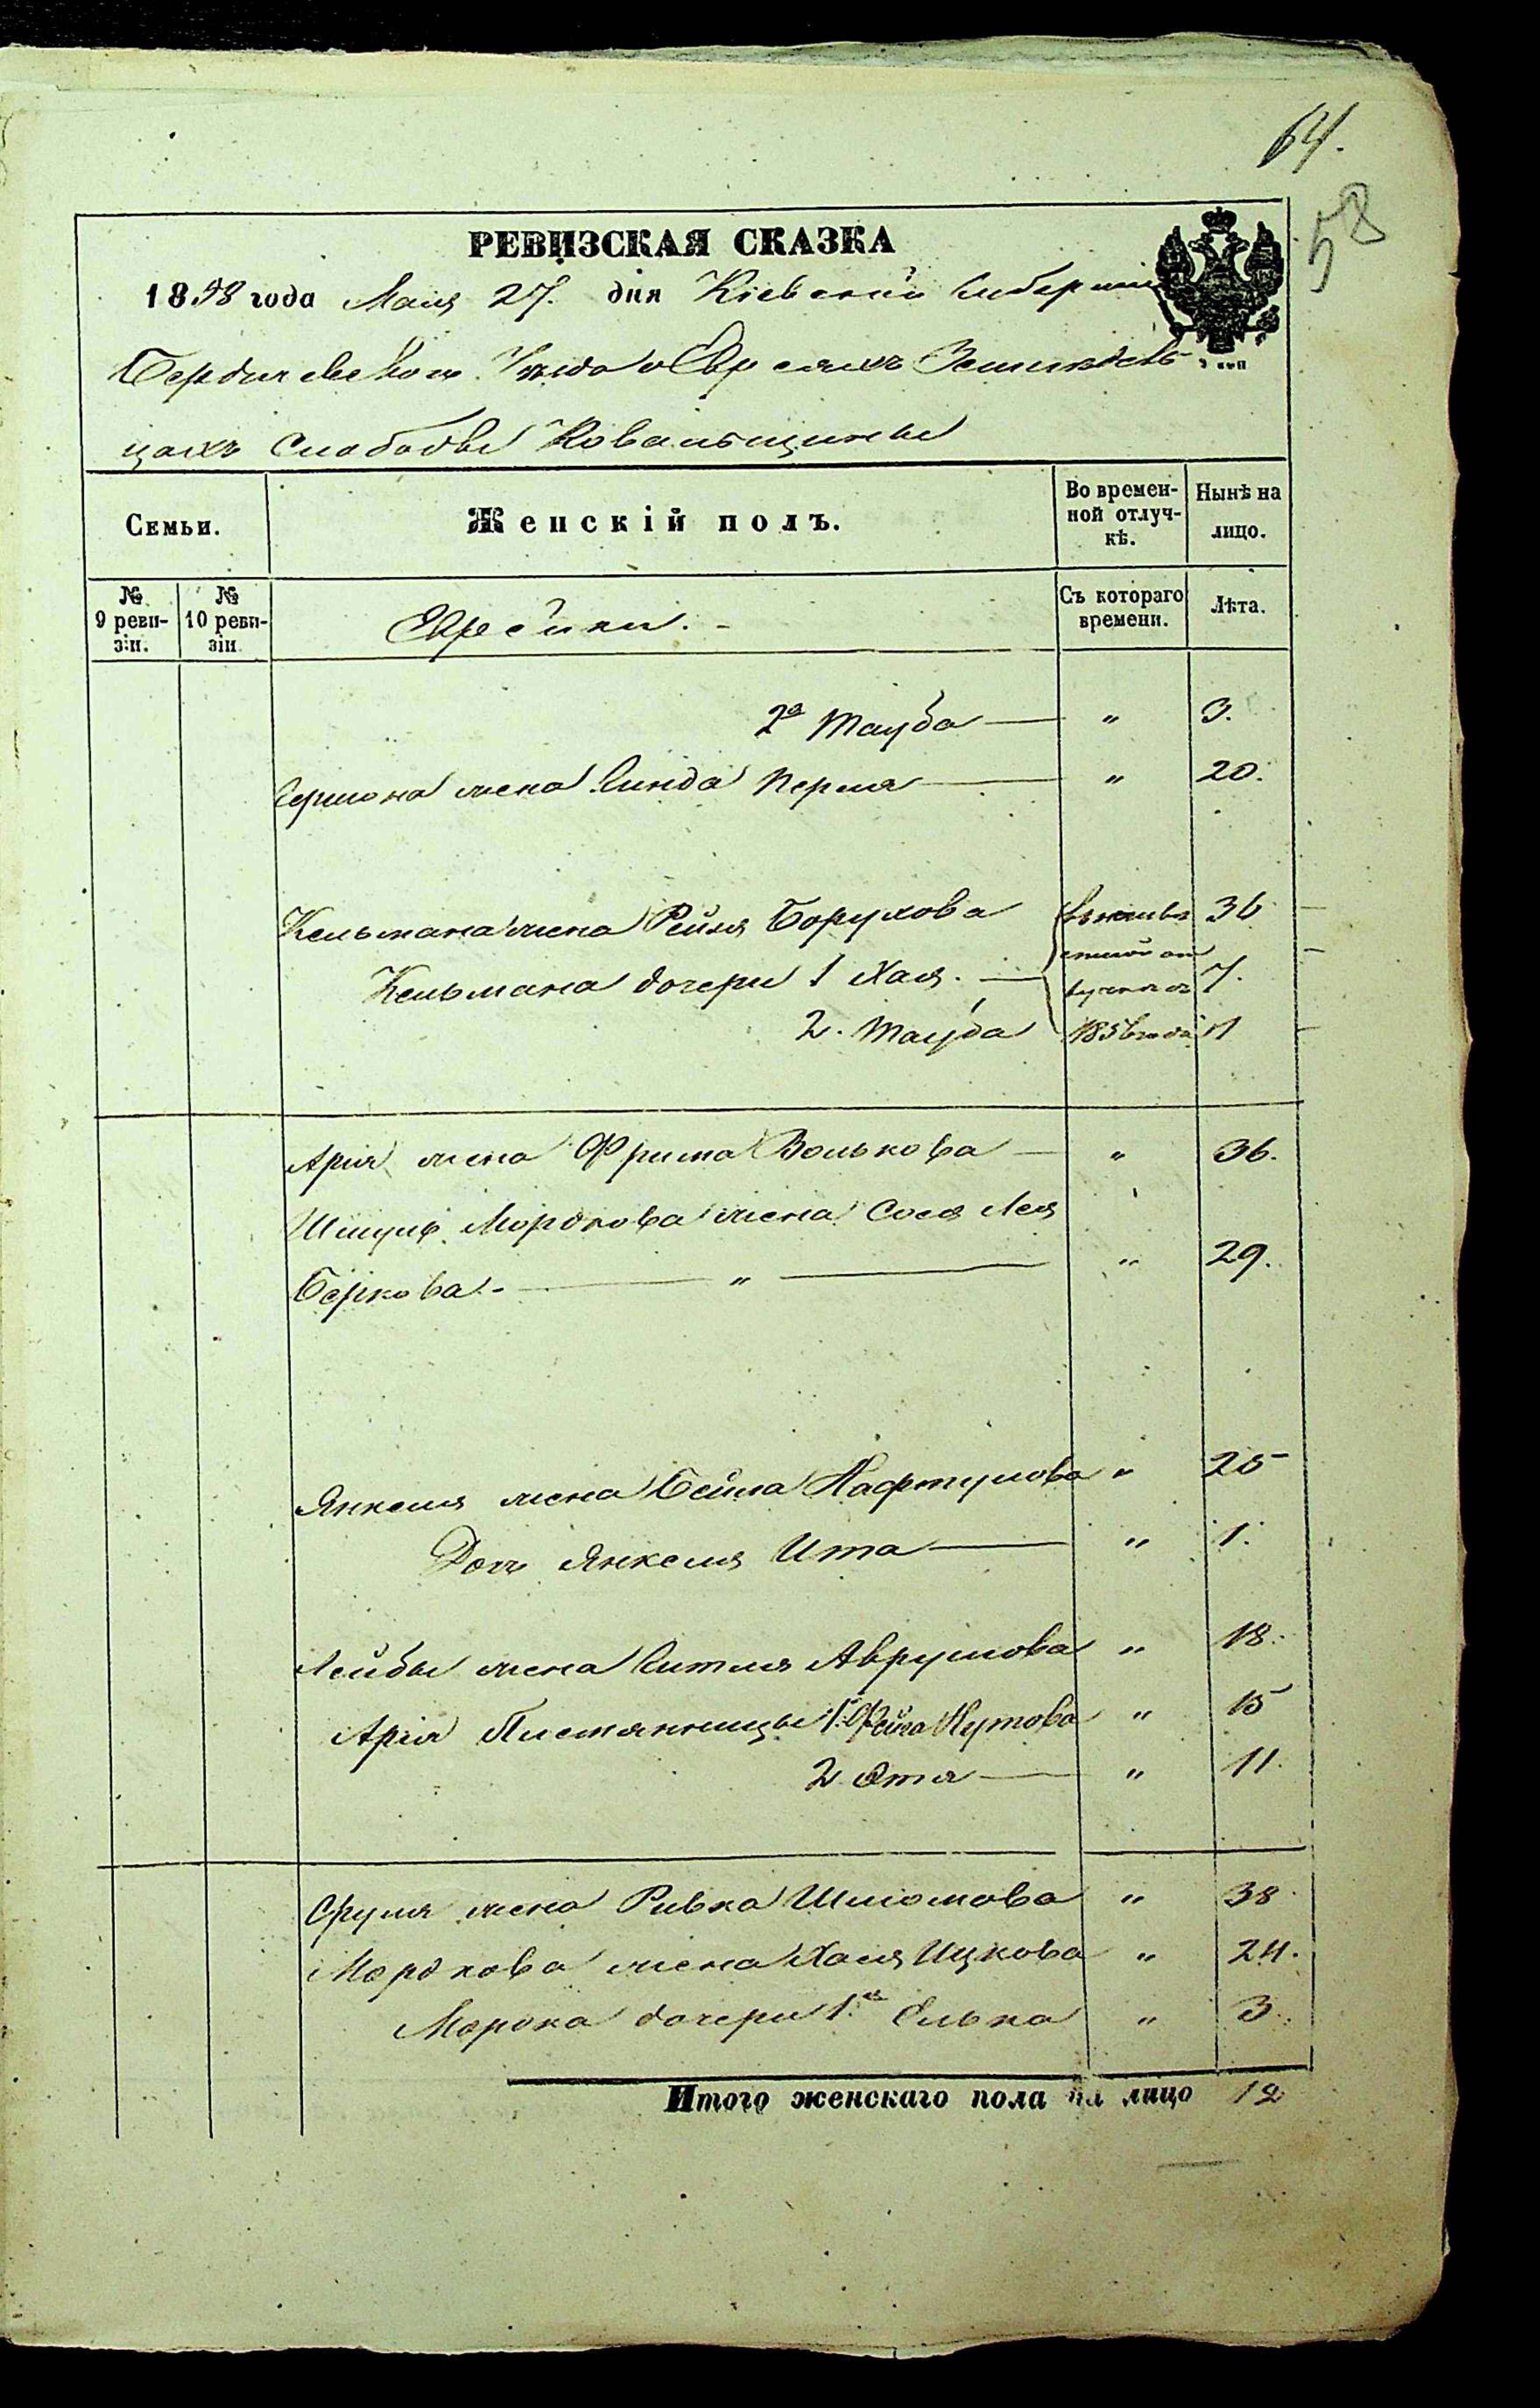 64.
58
РЕВИЗСКАЯ СКАЗКА
1858 года Маія 27. дня Кіевской Губерніи
Бердичевского Уезда о Евреяхъ Земледѣль-
цахъ Слободы Ковальщины
Семьи.
Женскій полъ.
Во времен-
ной отлуч-
кѣ.
Нынѣ на
лицо.
№ 9 реви-
зіи.
№ 10 реви-
зіи
Еврейки. -
Съ котораго
времени.
Лѣта.
2я Тауба — " 3.
Гершона жена Гинда Перля — " 20.
Кельмана жена Рейзя Борухова 36
Кельмана дочери 1 Хая. — 7.
2. Тауба 1
1856 года
Арія жена Фрима Волькова — " 36.
Шмуль Мордкова жена Сося Лея
Беркова. - — " — " 29.
Янкеля жена Бейла Нафтулова " 25
Дочь Янкеля Ита — " 1.
Лейбы жена Гитля Аврумова " 18.
Арія 1. Фейга Нутова " 15
2. Этя — " 11.
Сруля жена Ривка Шлиомова " 38
Мордкова жена Хася Ицкова " 24.
Мордка дочери 1я Елька " 3.
Итого женскаго пола на лицо 12